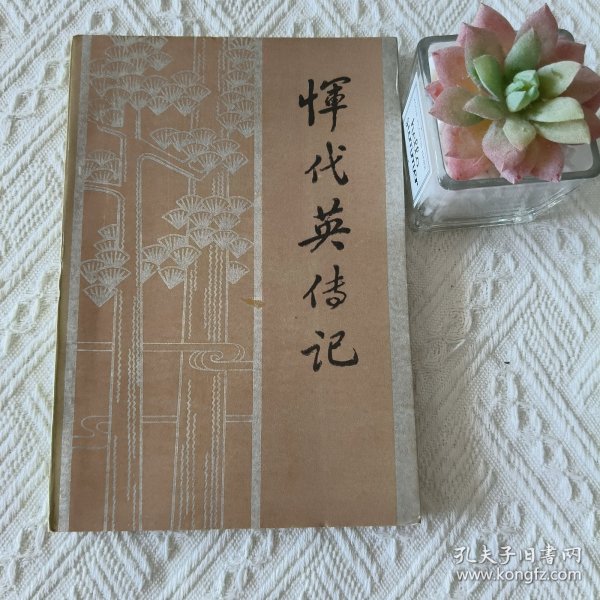 恽代英传记
孔夫子旧书网
www.kongfz.com